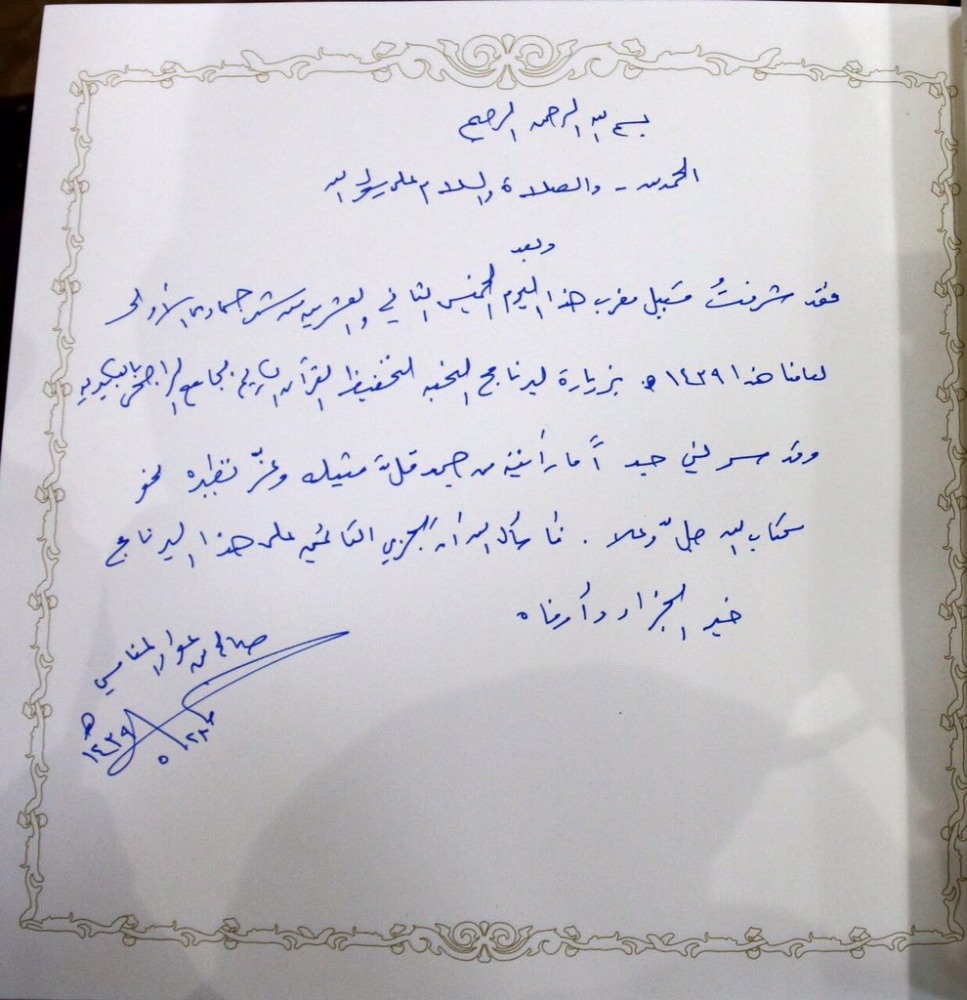 بسم الله الرحمن الرحيم
الحمد لله - والصلاة والسلام على رسول الله
وبعد
فقد شرفتُ قبيل مغرب هذا اليوم الخميس الثاني والعشرين من شهر جمادى الأولى
لعامنا هذا ١٤٣٩ هـ بزيارة لبرنامج النخبة لتحفيظ القرآن الكريم بجامع الراجحي بالبكيرية
وقد سرني جداً ما رأيته من جهد قلّ مثيله وعزّ نظيره نحو
كتاب الله جلّ وعلا . فأسأل الله أن يجزي القائمين على هذا البرنامج
خير الجزاء وأوفاه
صالح بن عواد المغامسي
١٤٣٩ هـ